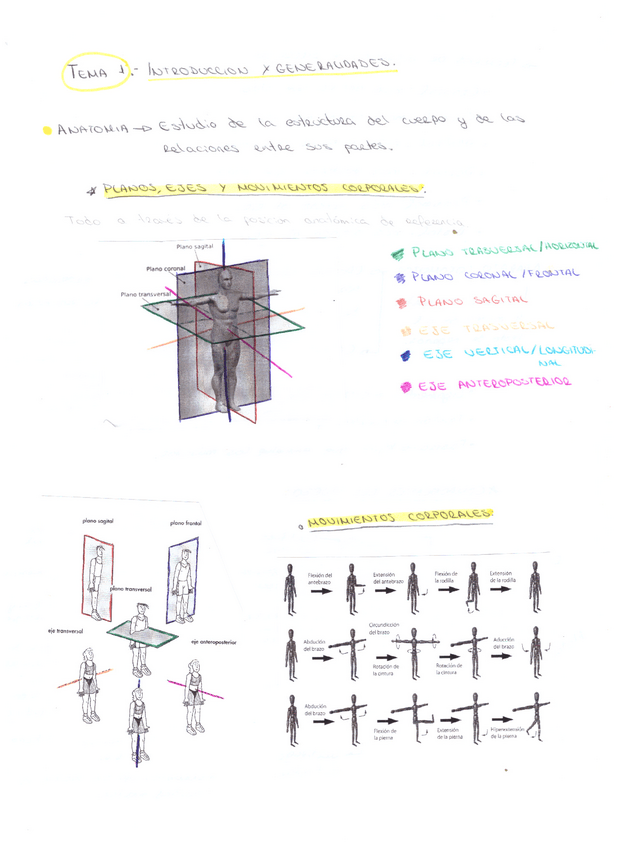 TEMA 1.- INTRODUCCION Y GENERALIDADES.
ANATOMIA → Estudio de la estructura del cuerpo y de las
relaciones entre sus partes.
* PLANOS, EJES Y MOVIMIENTOS CORPORALES.
Todo a traves de la posicion anatómica de referencia
Plano sagital
Plano coronal
Plano transversal
PLANO TRASVERSAL/HORIZONTAL
PLANO CORONAL/FRONTAL
PLANO SAGITAL
EJE TRASVERSAL
EJE VERTICAL/LONGITUDI-
NAL
EJE ANTEROPOSTERIOR
plano sagital
plano frontal
plano transversal
eje transversal
eje anteroposterior
MOVIMIENTOS CORPORALES.
Flexión del
antebrazo
Extensión
del antebrazo
Flexión de
la rodilla
Extensión
de la rodilla
Abducción
del brazo
Circundicción
del brazo
Rotación de
la cintura
Rotación de
la cintura
Aducción
del brazo
Abducción
del brazo
Flexión de
la pierna
Extensión
de la pierna
Hiperextensión
de la pierna